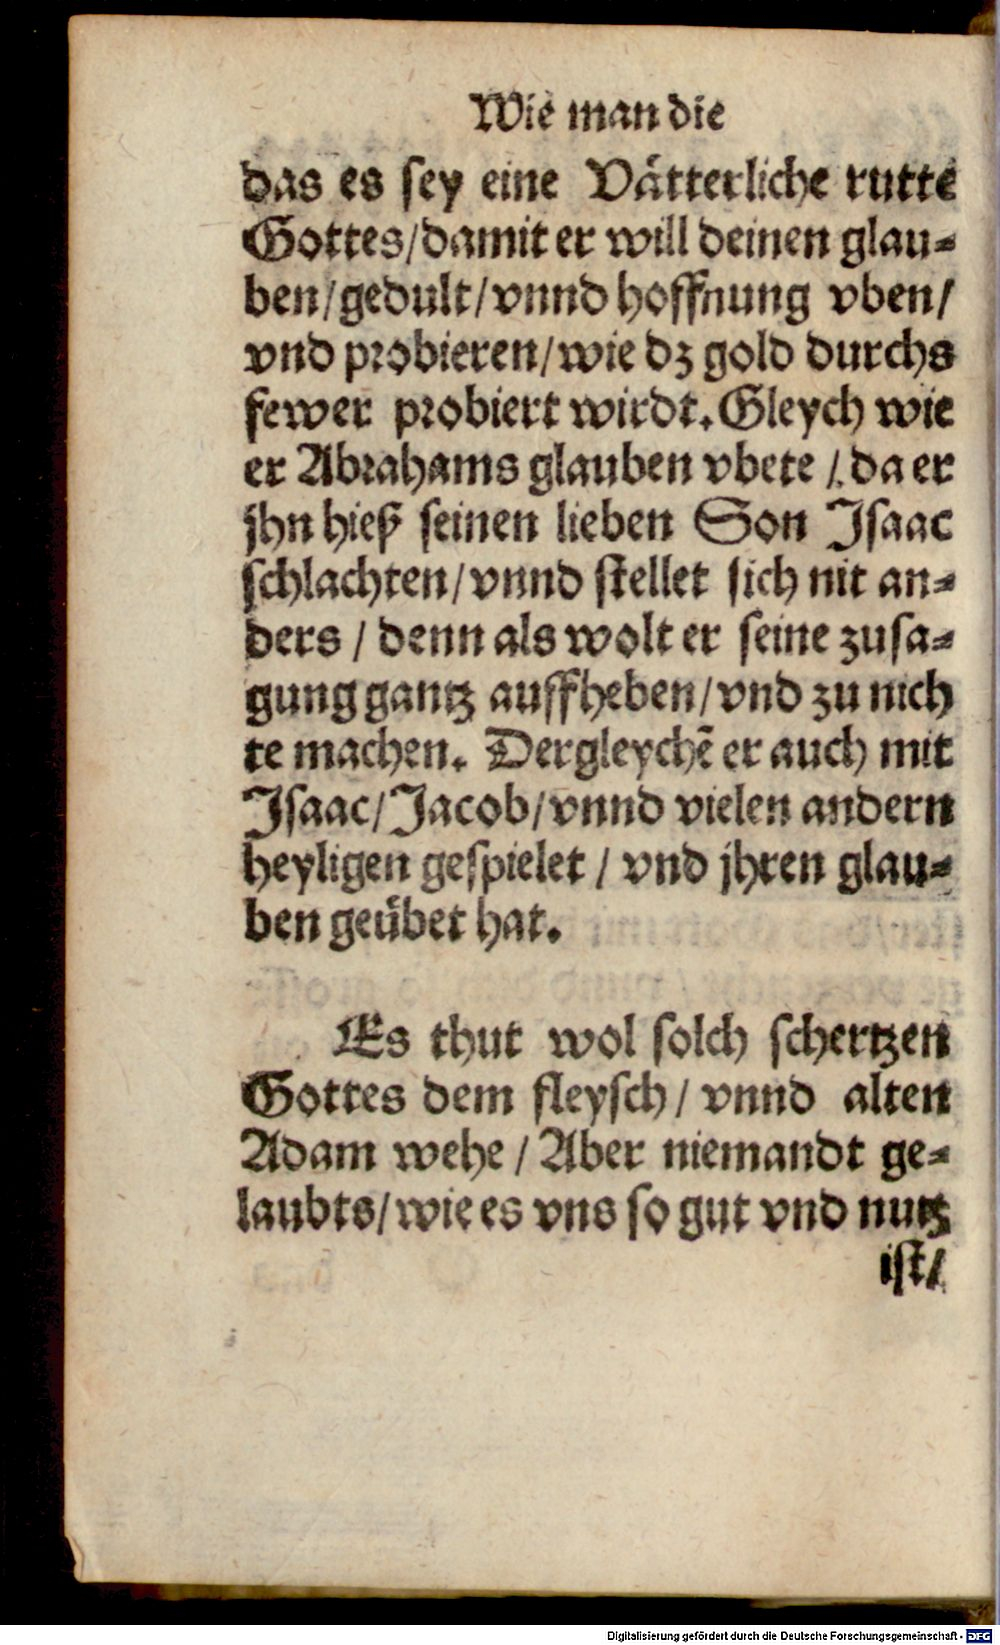 Wie man die
das es sey eine Vätterliche rutte
Gottes/damit er will deinen glau-
ben/gedult/vnnd hoffnung vben/
vnd probieren/wie dz gold durchs
fewer probiert wirdt. Gleych wie
er Abrahams glauben vbete /da er
jhn hieß seinen lieben Son Isaac
schlachten/vnnd stellet sich nit an-
ders / denn als wolt er seine zusa-
gung gantz auffheben/vnd zu nich
te machen. Dergleychē er auch mit
Isaac/Jacob/vnnd vielen andern
heyligen gespielet / vnd jhren glau-
ben geübet hat.
Es thut wol solch schertzen
Gottes dem fleysch/ vnnd alten
Adam wehe / Aber niemandt ge-
laubts/wie es vns so gut vnd nutz
ist/
Digitalisierung gefördert durch die Deutsche Forschungsgemeinschaft - DFG